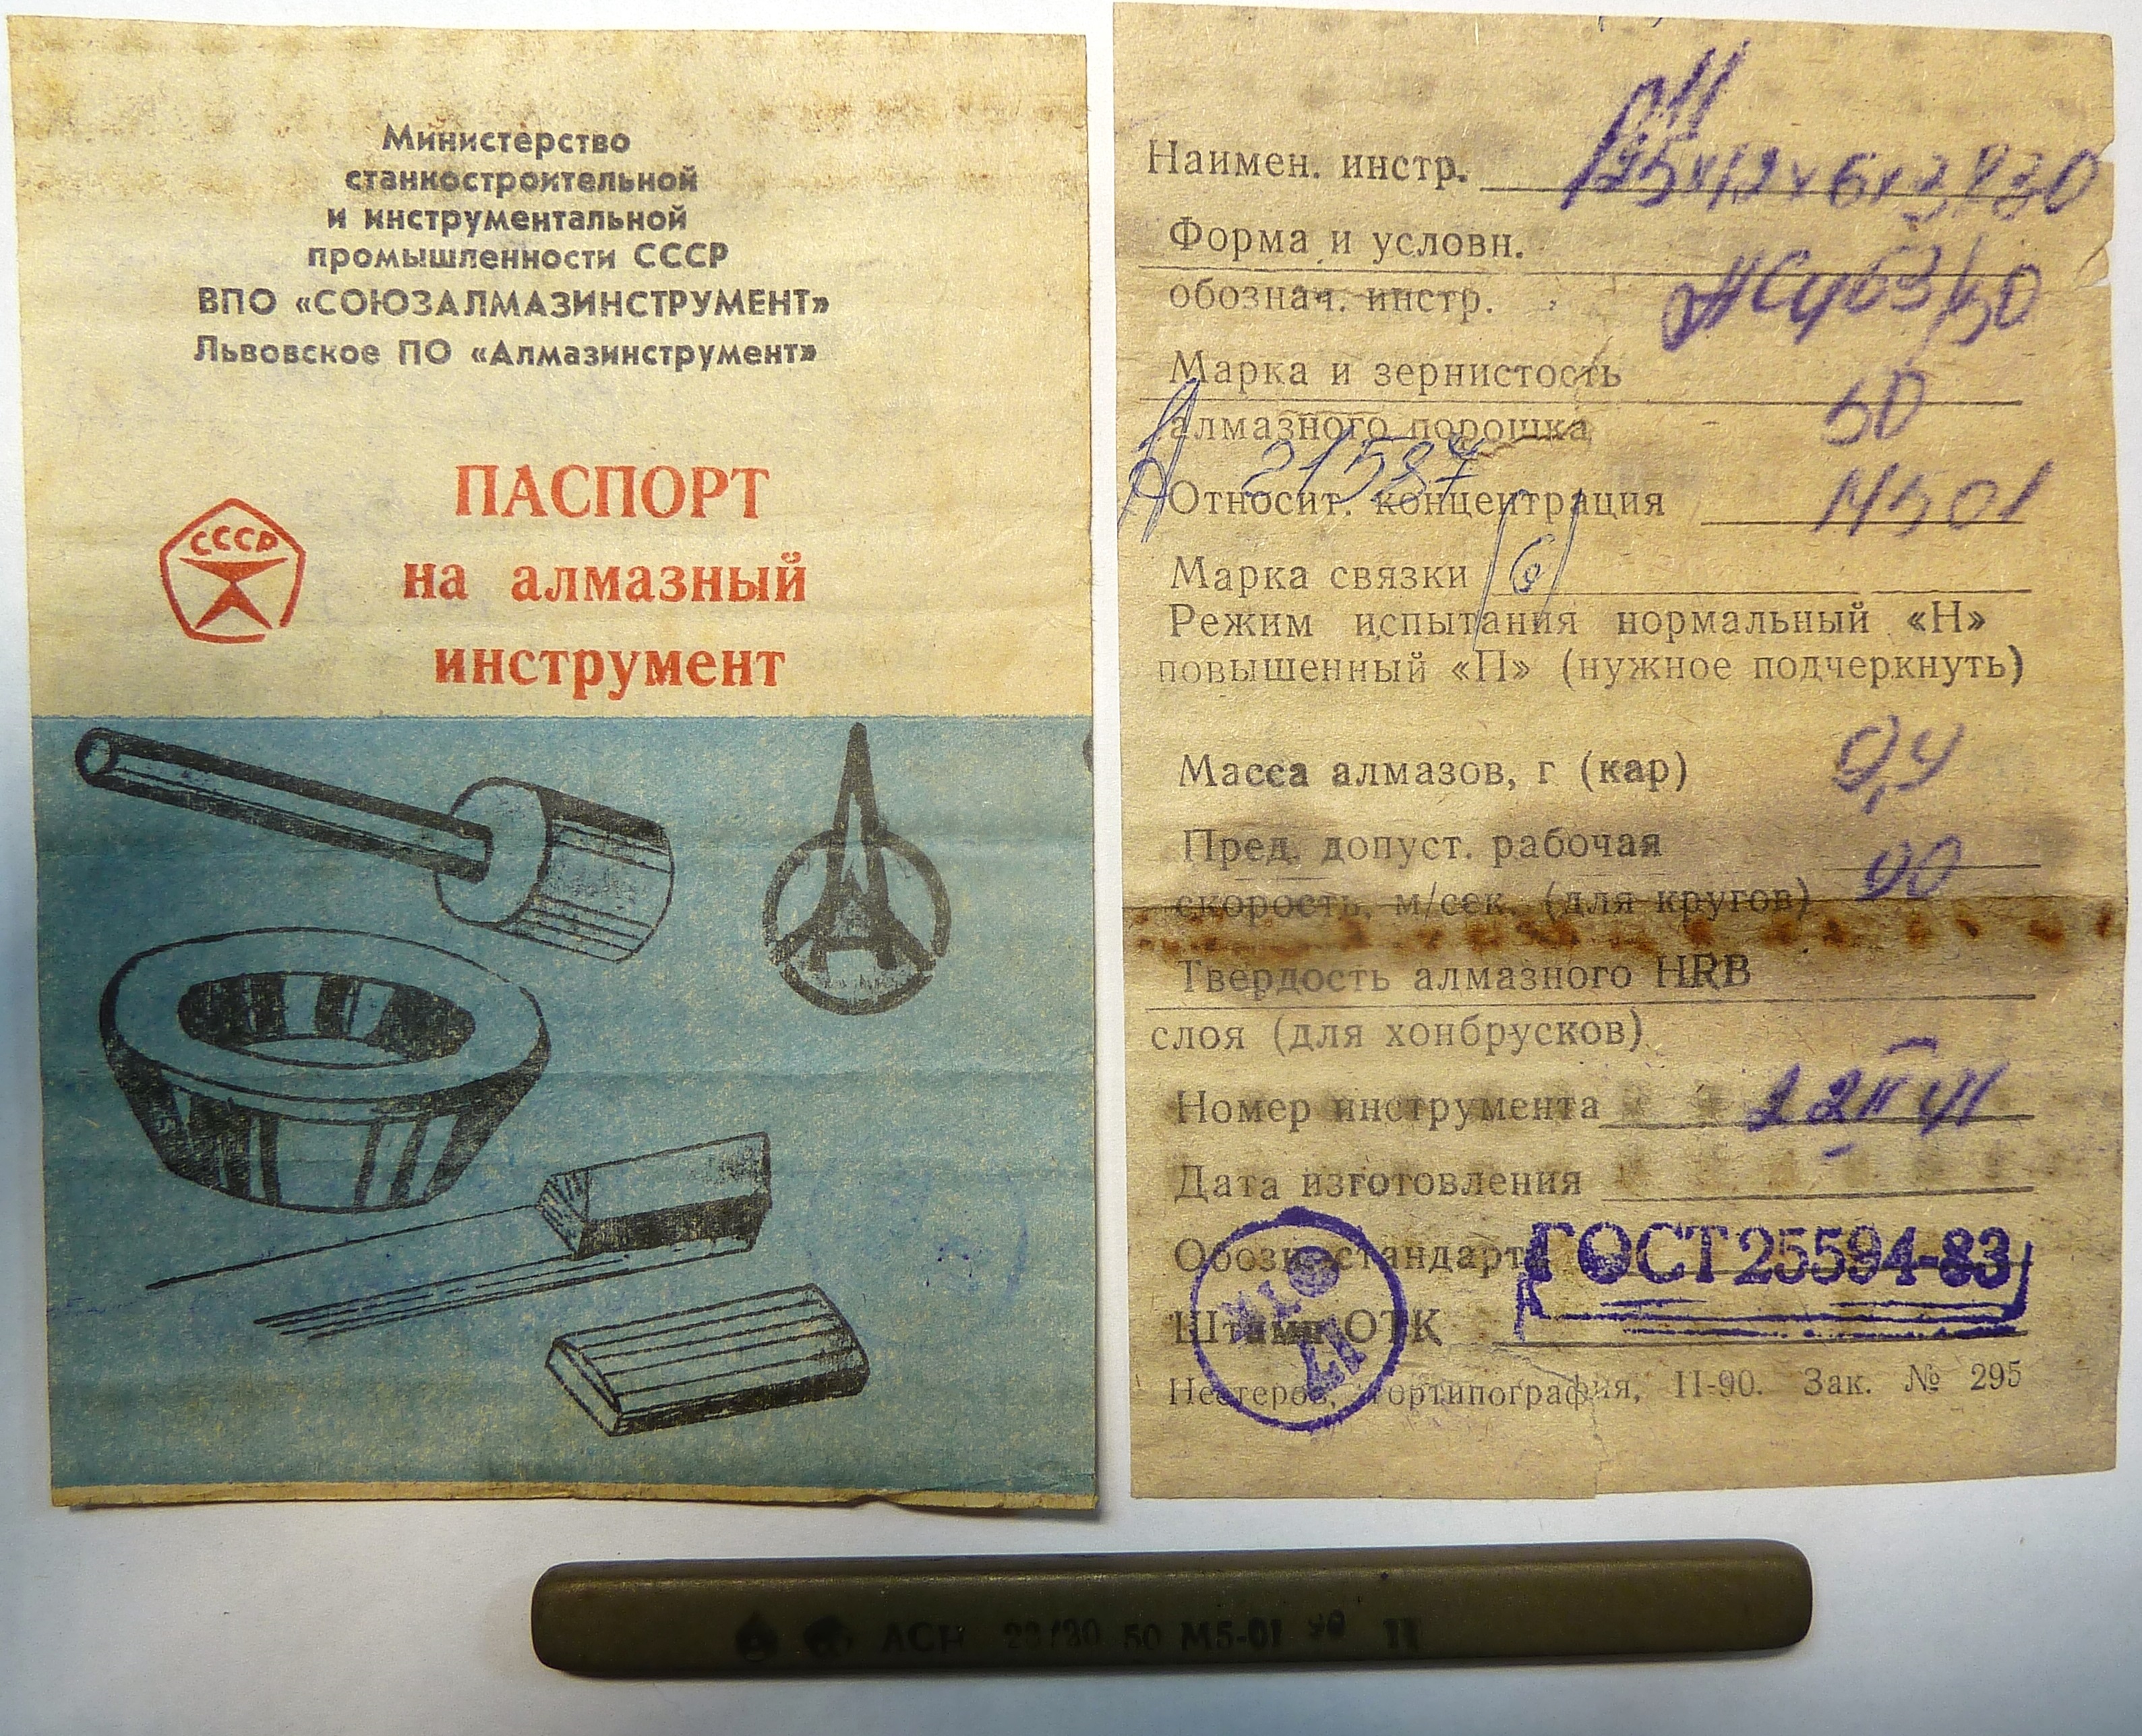 Министерство
станкостроительной
и инструментальной
промышленности СССР
ВПО «СОЮЗАЛМАЗИНСТРУМЕНТ»
Львовское ПО «Алмазинструмент»
СССР
ПАСПОРТ
на алмазный
инструмент
Наимен. инстр.
Форма и условн.
обознач. инстр.
63/50
Марка и зернистость
50
алмазного порошка
21587
Относит. концентрация
М501
Марка связки
Режим испытания нормальный «Н»
повышенный «П» (нужное подчеркнуть)
Масса алмазов, г (кар)
9,4
Пред. допуст. рабочая
90
скорость, м/сек. (для кругов)
Твердость алмазного HRB
слоя (для хонбрусков)
Номер инструмента
Дата изготовления
Обозн. стандарта ГОСТ 25594-83
Штамп ОТК
ОТК
17
Нестеров, гортипография, II-90. Зак. № 295
50 М5-01 90